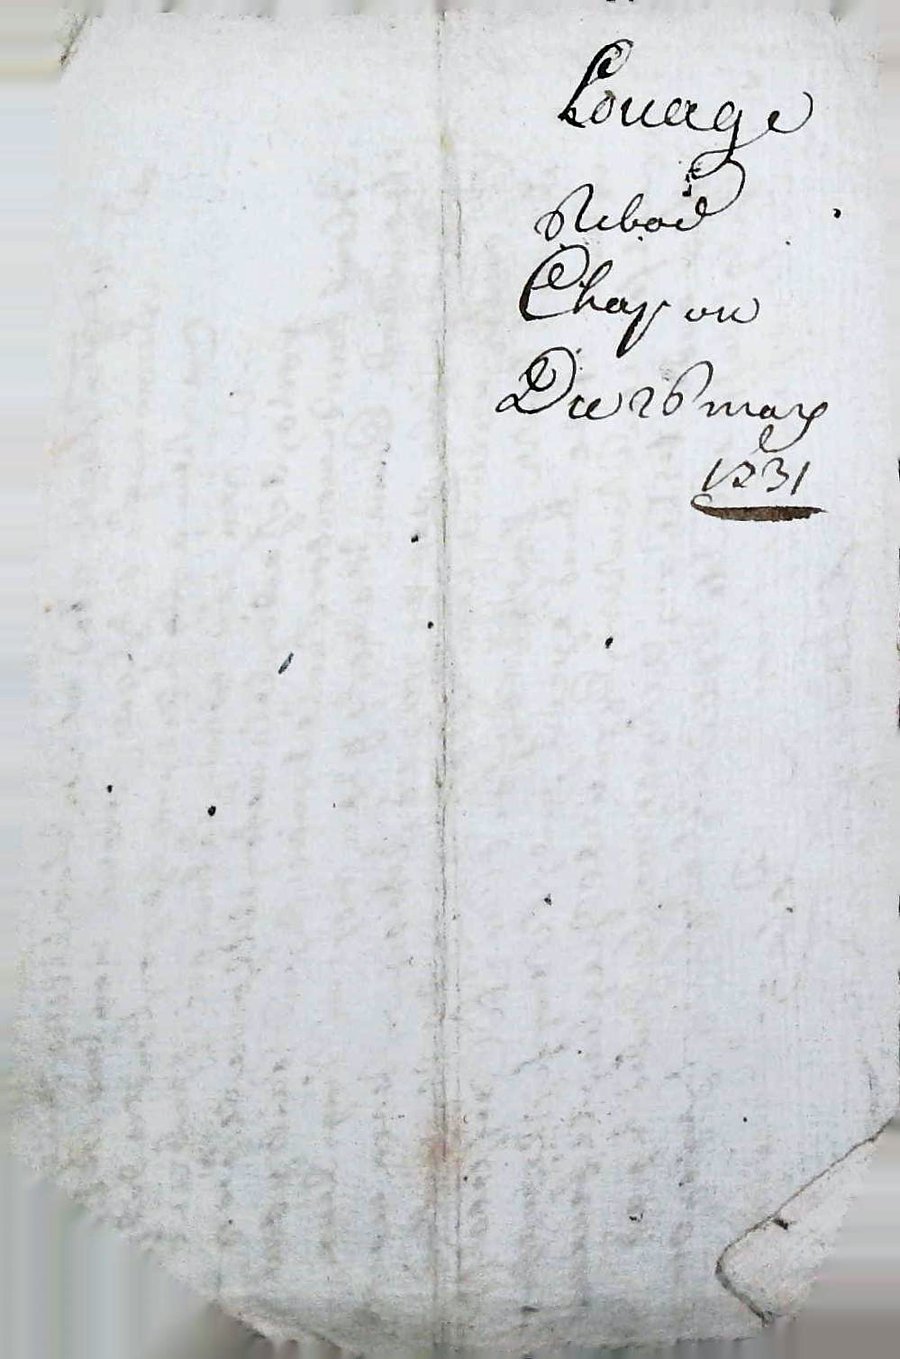 Louage
Rebod
Chapon
Du 26 may
1731